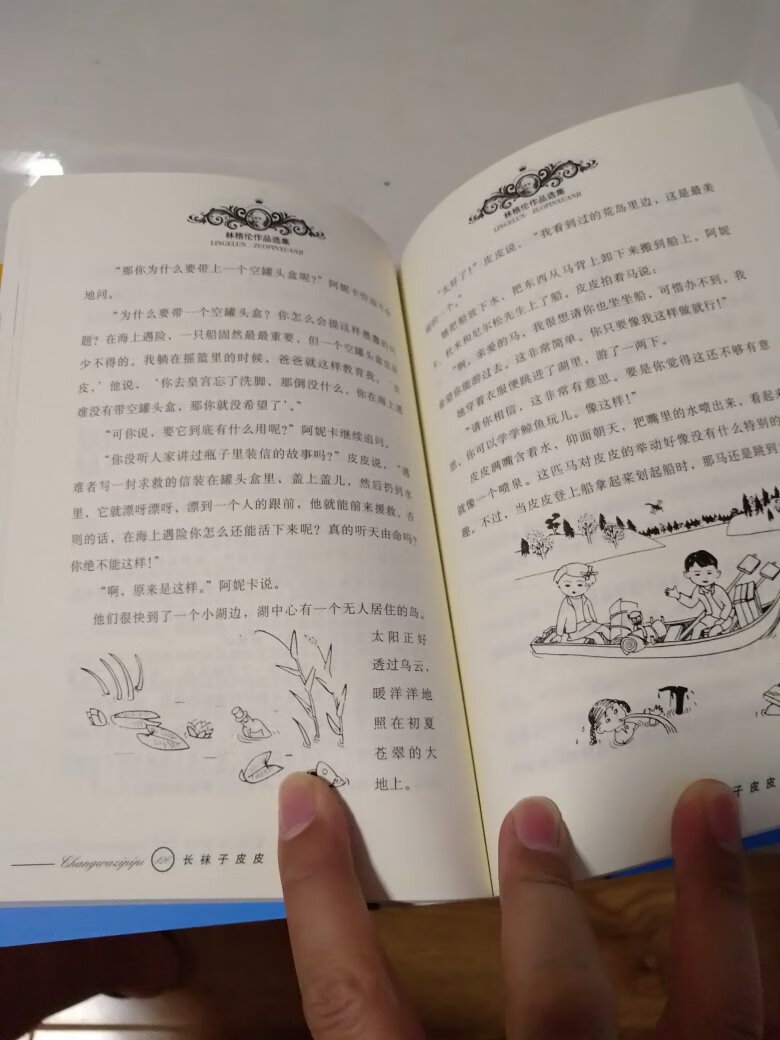 林格伦作品选集
LINGELUN ZUOPINXUANJI
“那你为什么要带上一个空罐头盒呢?”阿妮卡穷追不舍
地问。
“为什么要带一个空罐头盒?你怎么会提这样愚蠢的问
题?在海上遇险,一只船固然最最重要,但一个空罐头盒也是
少不得的。我躺在摇篮里的时候,爸爸就这样教育我,‘皮
皮,’他说,‘你去皇宫忘了洗脚,那倒没什么,你在海上遇
难没有带空罐头盒,那你就没希望了’。”
“可你说,要它到底有什么用呢?”阿妮卡继续追问。
“你没听人家讲过瓶子里装信的故事吗?”皮皮说,“遇
难者写一封求救的信装在罐头盒里,盖上盖儿,然后扔到水
里,它就漂呀漂呀,漂到一个人的跟前,他就能前来援救。否
则的话,在海上遇险你怎么还能活下来呢?真的听天由命吗?
你绝不能这样!”
“啊,原来是这样。”阿妮卡说。
他们很快到了一个小湖边,湖中心有一个无人居住的岛。
太阳正好
透过乌云,
暖洋洋地
照在初夏
苍翠的大
地上。
Changwazipipi 120 长袜子皮皮
林格伦作品选集
LINGELUN ZUOPINXUANJI
“太好了!”皮皮说,“我看到过的荒岛里边,这是最美
的一个。”
她把船放下水,把东西从马背上卸下来搬到船上。阿妮
卡、杜米和尼尔松先生上了船。皮皮拍着马说:
“啊,亲爱的马,我很想请你也坐坐船,可惜办不到。我
希望你能游过去。这非常简单。你只要像我这样做就行!”
她穿着衣服便跳进了湖里,游了一两下。
“请你相信,这非常有意思。要是你觉得这还不够有意
思,你可以学学鲸鱼玩儿。像这样!”
皮皮满嘴含着水,仰面朝天,把嘴里的水喷出来,看起来
就像一个喷泉。这匹马对皮皮的举动好像没有什么特别的
愿。不过,当皮皮登上船拿起桨划起船时,那马还是跳到
子皮皮